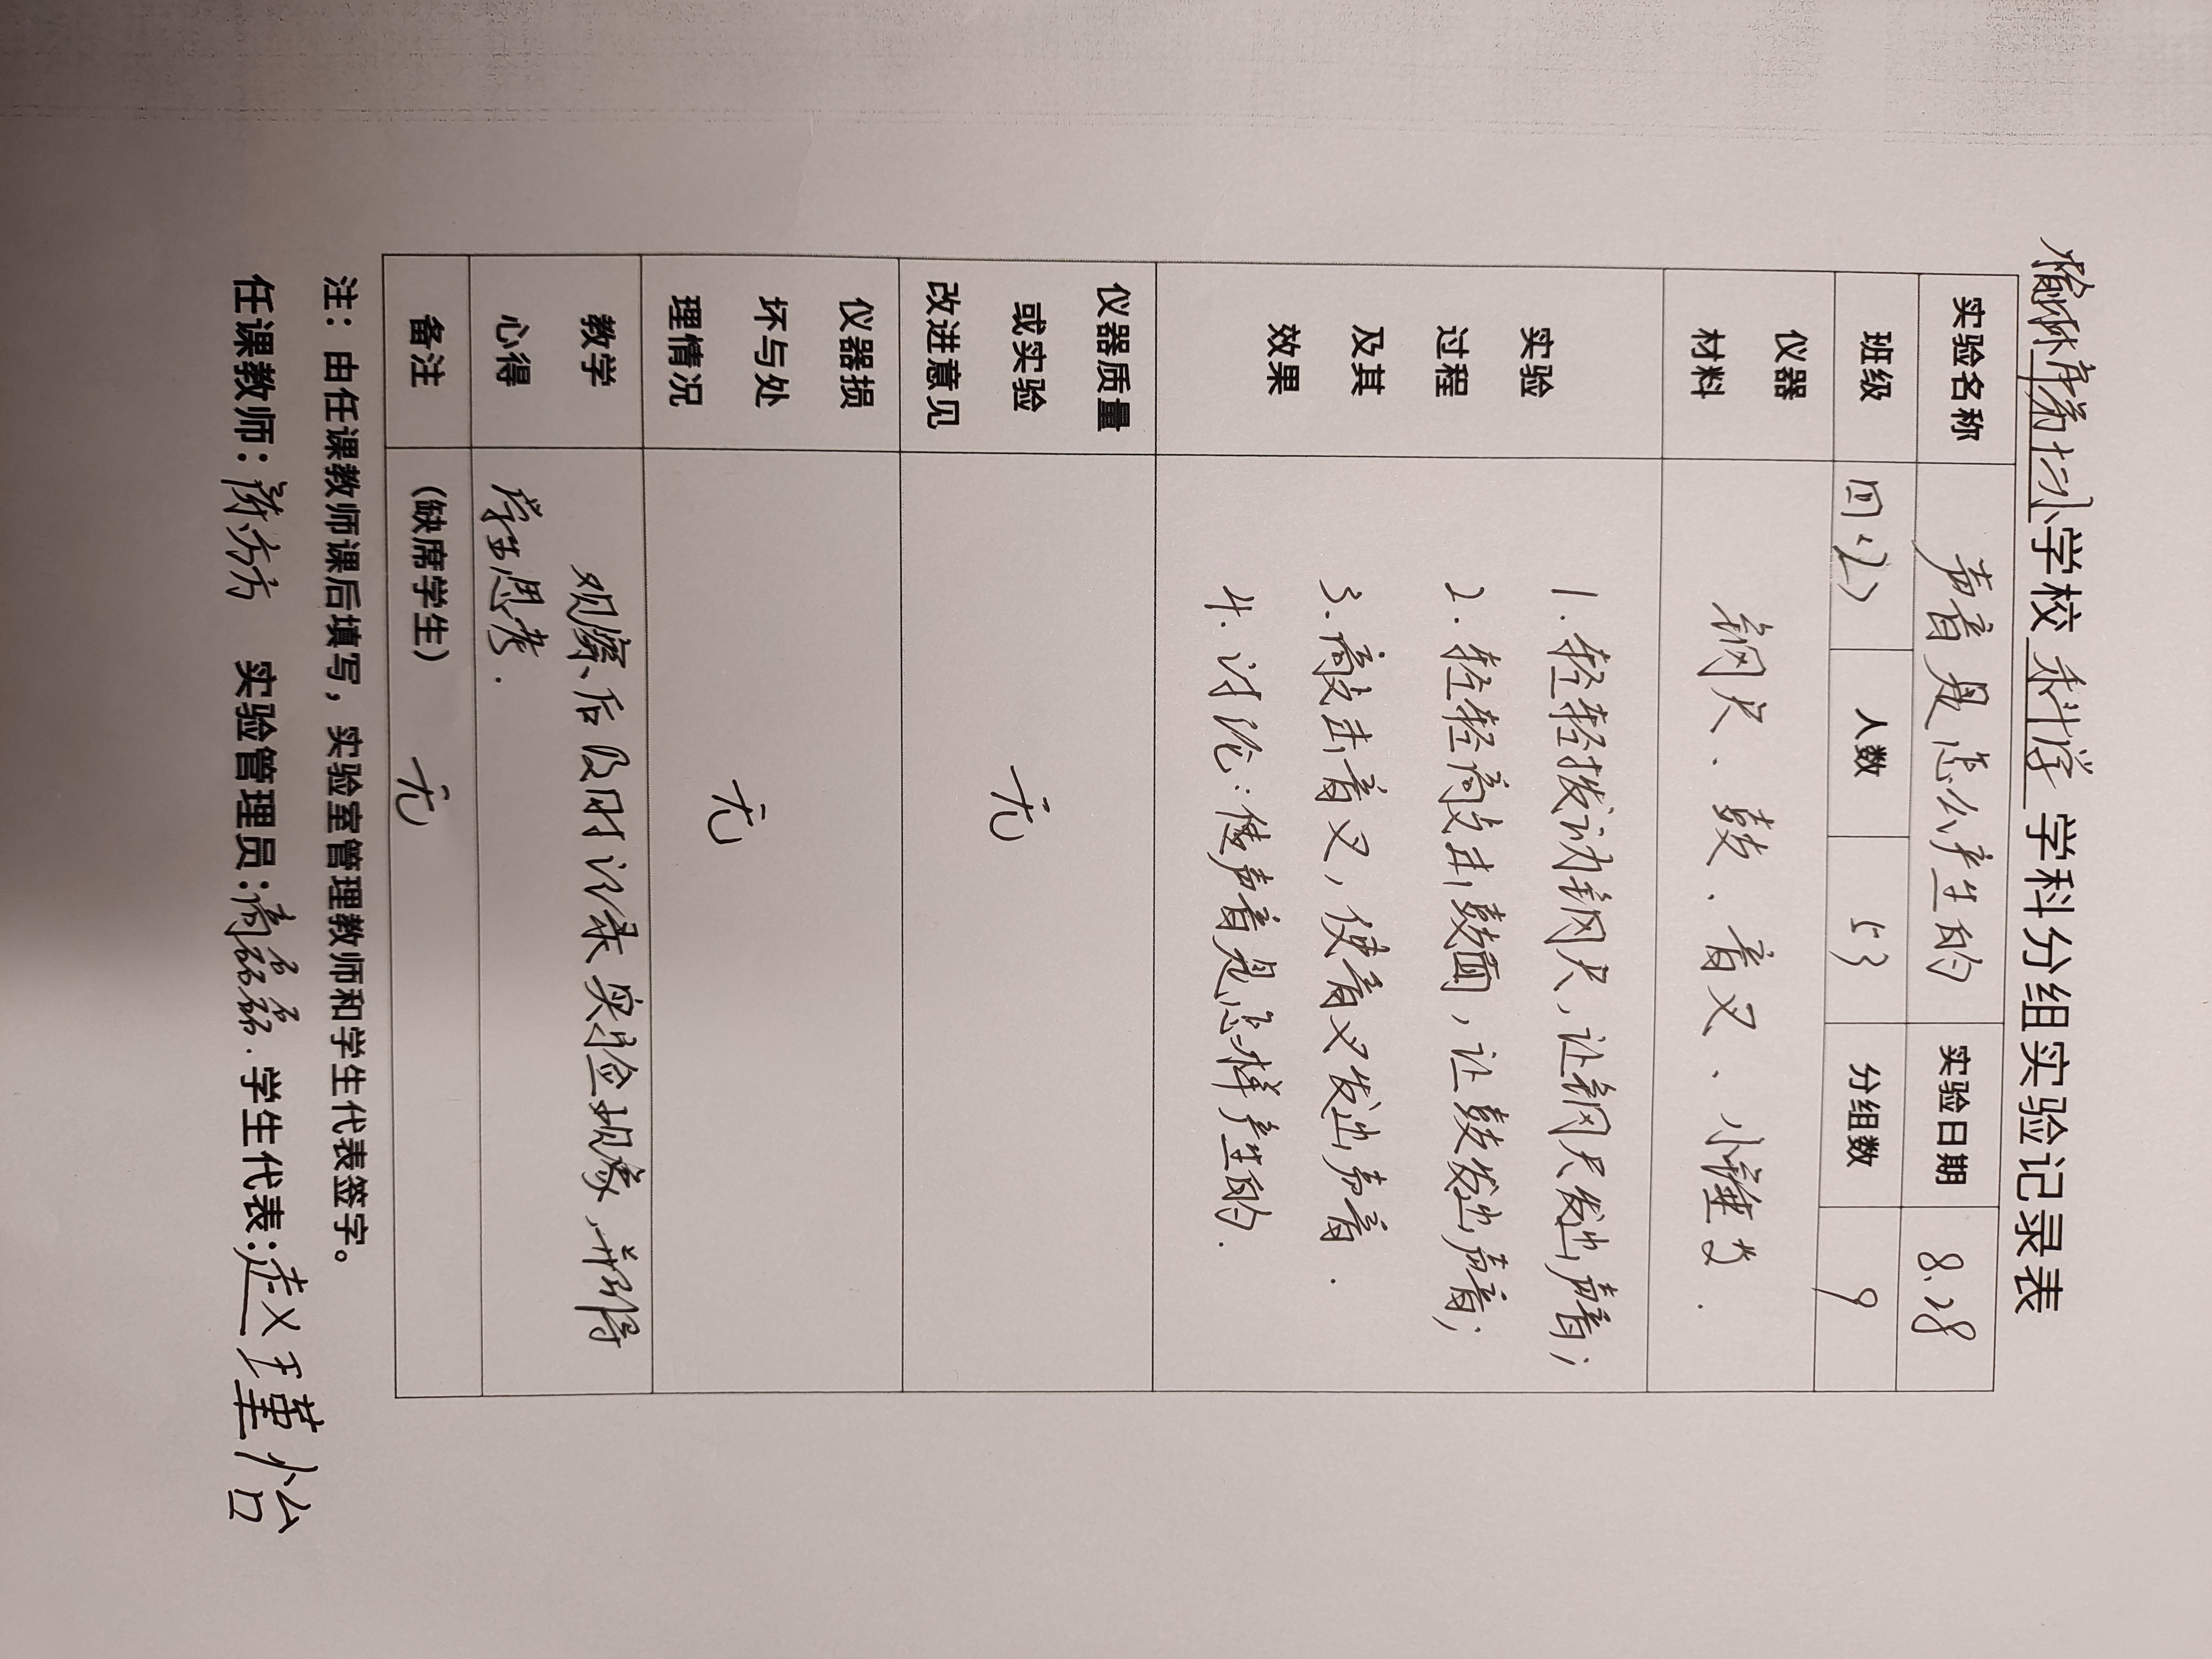 榆林市第十二小学校 科学 学科分组实验记录表
实验名称 声音是怎么产生的 实验日期 8.28
班级 四<2> 人数 53 分组数 9
仪器材料 钢尺、鼓、音叉、小锤等.
实验过程及其效果
1.轻轻拨动钢尺,让钢尺发出声音;
2.轻轻敲击鼓面,让鼓发出声音;
3.敲击音叉,使音叉发出声音.
4.讨论:使声音是怎样产生的.
仪器质量或实验改进意见 无
仪器损坏与处理情况 无
教学心得 观察后及时记录实验现象,并引导
学生思考.
备注 (缺席学生) 无
注:由任课教师课后填写,实验室管理教师和学生代表签字。
任课教师: 实验管理员:高磊磊. 学生代表:赵瑾怡